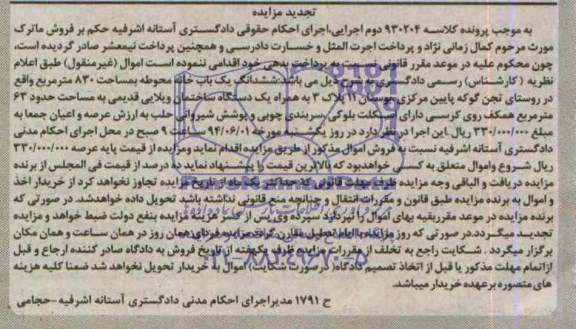 تجدید مزایده
به موجب پرونده کلاسه ۹۳۰۲۰۴ دوم اجرایی،اجرای احکام حقوقی دادگستری آستانه اشرفیه حکم بر فروش ماترک
مورث مرحوم کمال زمانی نژاد و پرداخت اجرت المثل و خسارت دادرسی و همچنین پرداخت نیمعشر صادر گردیده است،
چون محکوم علیه در موعد مقرر قانونی نسبت به پرداخت بدهی خود اقدامی ننموده است اموال (غیرمنقول) طبق اعلام
نظریه (کارشناس) رسمی دادگستری به شرح ذیل می باشد:ششدانگ یک باب خانه محوطه بمساحت ۸۳۰ مترمربع واقع
در روستای تجن گوکه پایین مرکزی بوستان ۱۱ پلاک ۳ به همراه یک دستگاه ساختمان ویلایی قدیمی به مساحت حدود ۶۳
مترمربع همکف روی کرسی دارای اسکلت بلوکی،سربندی چوبی و پوشش شیروانی حلب به ارزش عرصه و اعیان جمعا به
مبلغ ۳۳۰/۰۰۰/۰۰۰ ریال.این اجرا در نظر دارد در روز یکشنبه مورخه ۹۴/۰۶/۰۱ ساعت ۹ صبح در محل اجرای احکام مدنی
دادگستری آستانه اشرفیه نسبت به فروش اموال مذکور از طریق مزایده اقدام نماید ومزایده از قیمت پایه عرصه ۳۳۰/۰۰۰/۰۰۰
ریال شروع واموال متعلق به کسی خواهدبود که بالاترین قیمت را پیشنهاد نماید ۱۰ درصد از قیمت فی المجلس از برنده
مزایده دریافت و الباقی وجه مزایده ظرف مهلت قانونی که حداکثر یک ماه از تاریخ مزایده تجاوز نخواهد کرد از خریدار اخذ
و اموال به برنده مزایده طبق قانون و مقررات انتقال و چنانچه منع قانونی نداشته باشد تحویل داده خواهدشد. در صورتی که
برنده مزایده در موعد مقرربقیه بهای اموال را نپردازد سپرده وی پس از کسر هزینه مزایده بنفع دولت ضبط خواهد و مزایده
تجدید میگردد.در صورتی که روز مزایده با ایام تعطیل مقارن گردد مزایده فردای همان روز در همان ساعت و همان مکان
برگزار میگردد . شکایت راجع به تخلف از مقررات مزایده ظرف یکهفته از تاریخ فروش به دادگاه صادر کننده ارجاع و قبل
ازاتمام مهلت مذکور یا قبل از اتخاذ تصمیم دادگاه( درصورت شکایت) اموال به خریدار تحویل نخواهد شد ضمنا کلیه هزینه
های متصوره برعهده خریدار میباشد.
ح ۱۷۹۱ مدیراجرای احکام مدنی دادگستری آستانه اشرفیه-حجامی
۰۲۱-۸۸۳۴۹۶۷۰-۵